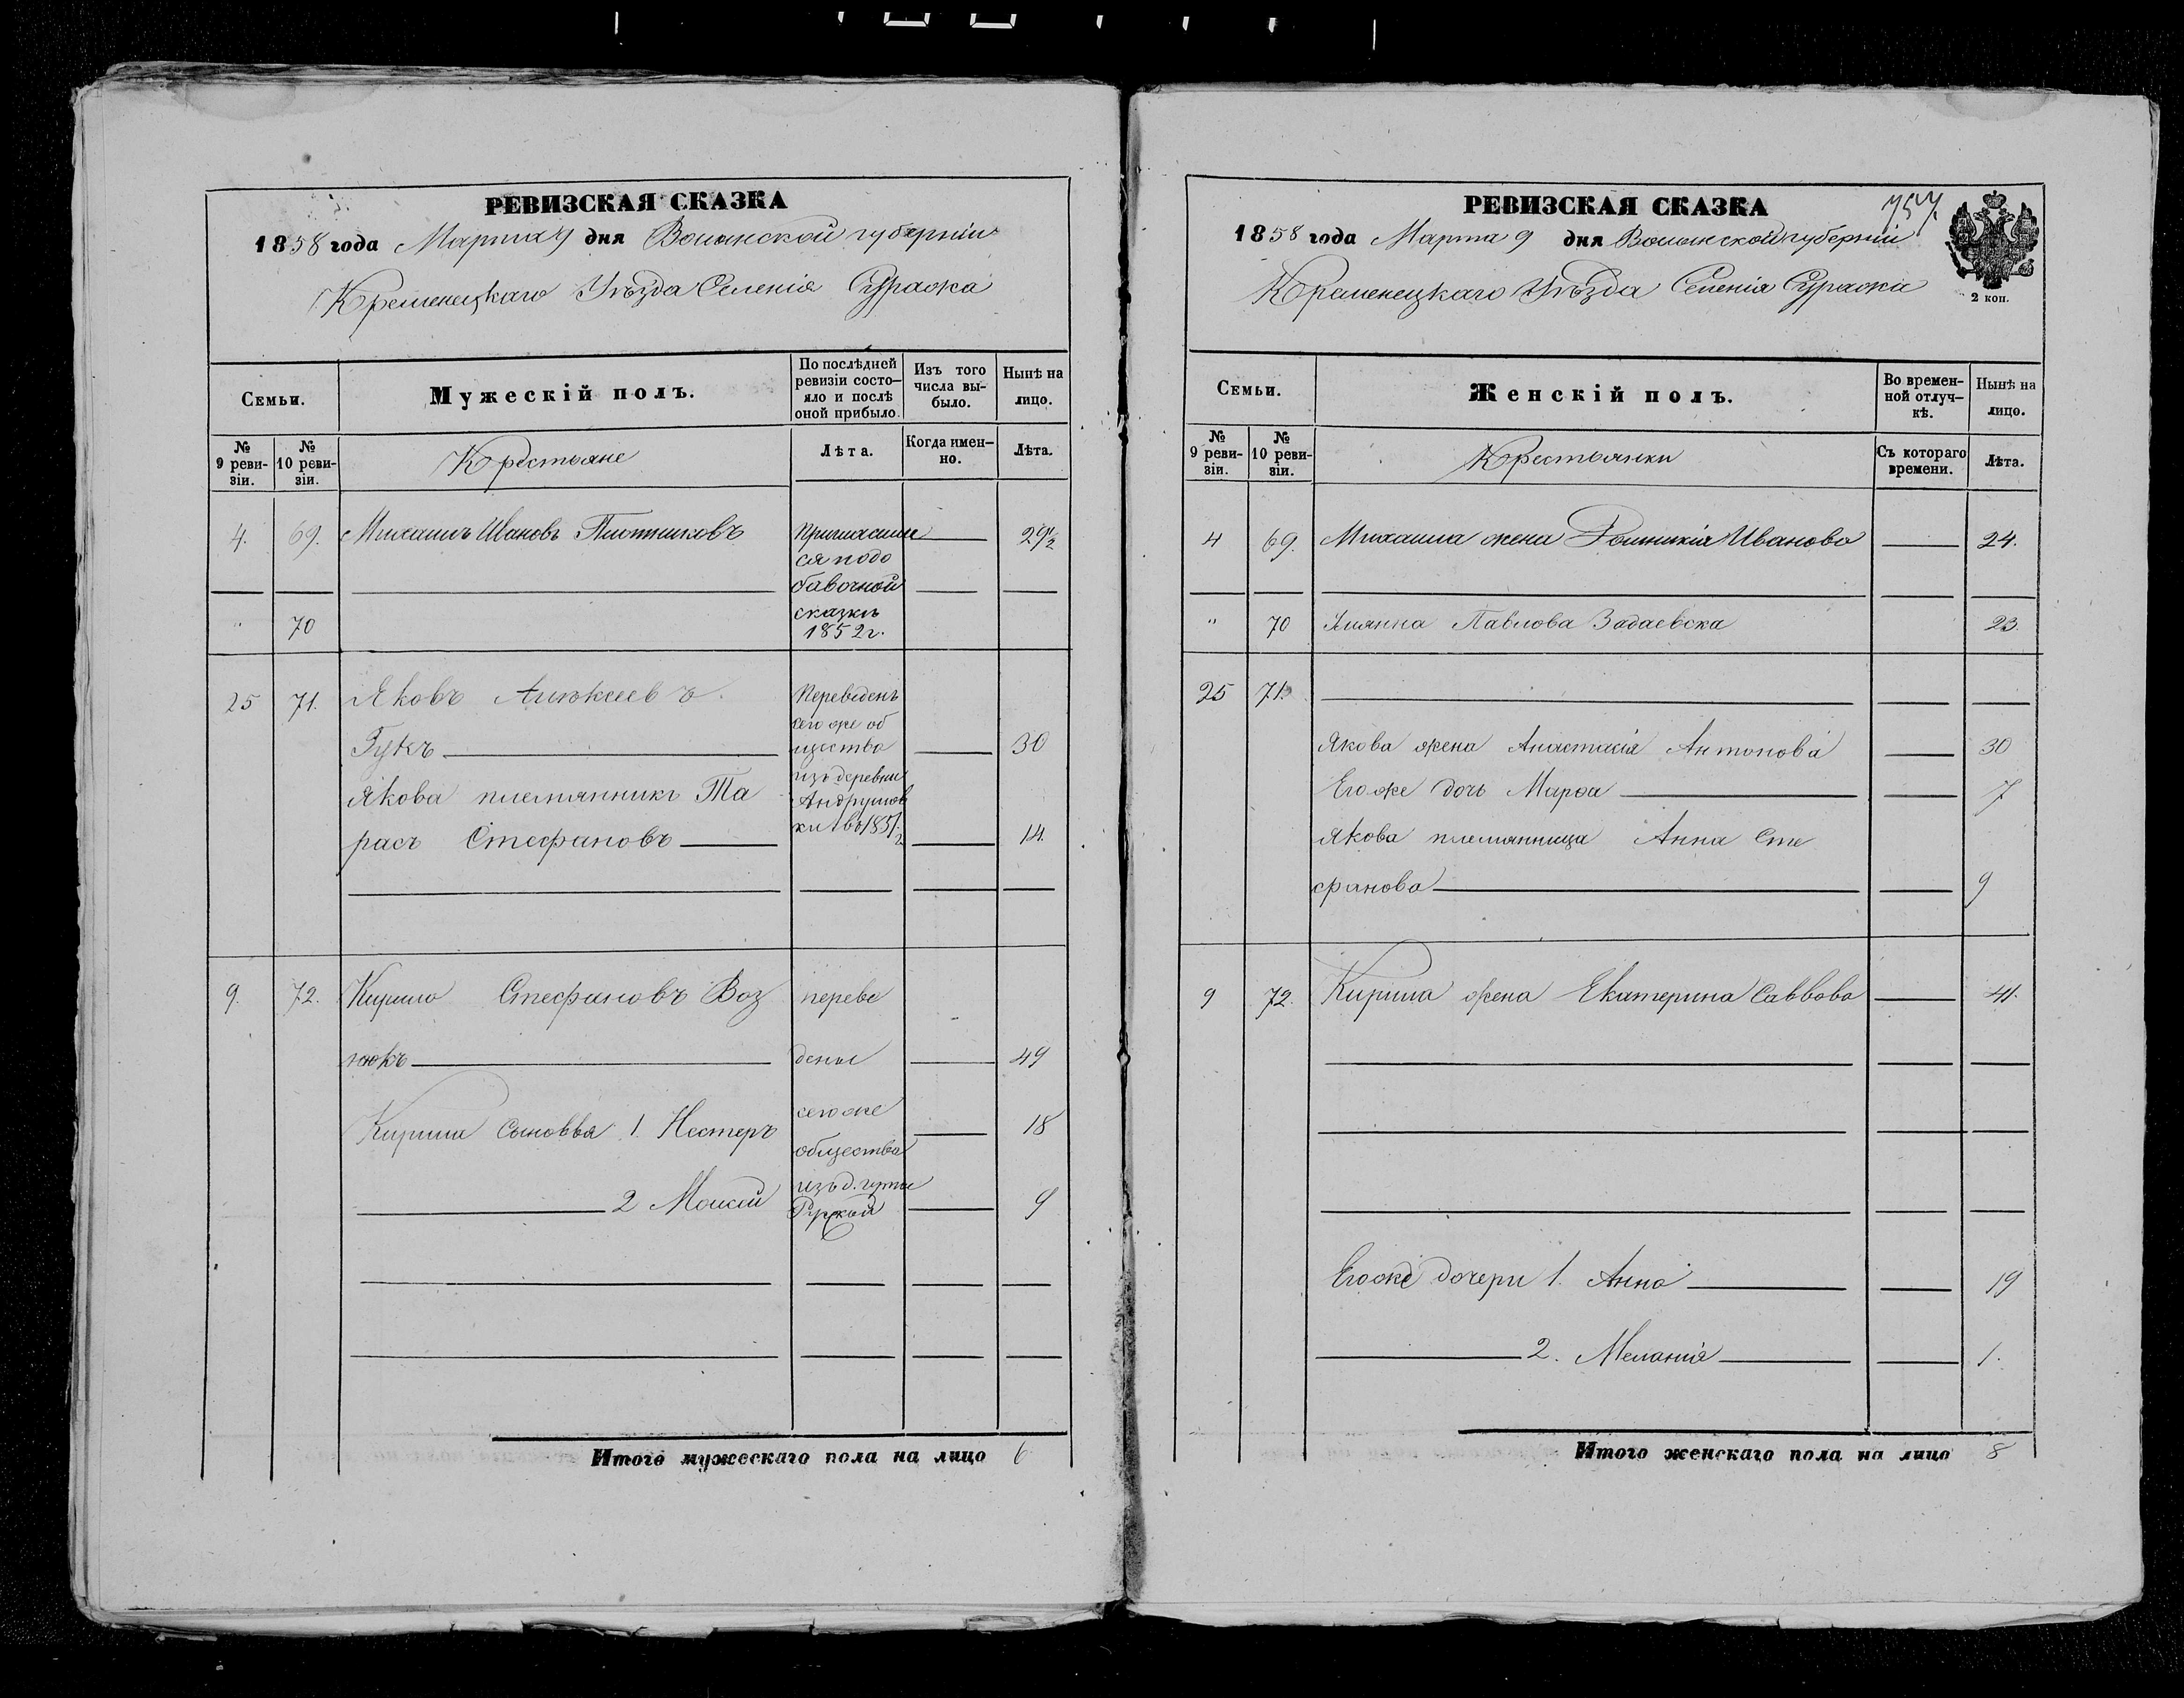 РЕВИЗСКАЯ СКАЗКА
1858 года Марта 9 дня Волынской губерніи
Кременецкаго Уѣзда Селенія Суража
Семьи.
Мужескій полъ.
По послѣдней ревизіи состо-
яло и послѣ
оной прибыло.
Изъ того
числа вы-
было.
Нынѣ на
лицо.
№
9 реви-
зіи.
№
10 реви-
зіи.
Крестьяне
Лѣта.
Когда имен-
но.
Лѣта.
4. 69. Михаилъ Ивановъ Плотниковъ
ся подо
бавочной
сказкѣ
1852 г.
29½
" 70
25 71. Яковъ Алѣксеевъ
Гукъ 30
Якова племянникъ Та
расъ Стефановъ 14.
Переведенъ
сего же об
щества
изъ деревни
Андрушов
ки въ 1851/2
9. 72. Кирило Стефановъ Воз
нюкъ 49
Кирила сыновья 1. Нестеръ 18
2 Моисей 9
переве
дены
сего же
общества
изъ д. гуты
Итого мужескаго пола на лицо 6
РЕВИЗСКАЯ СКАЗКА
757.
1858 года Марта 9 дня Волынской губерніи
Кременецкаго Уѣзда Селенія Суража
2 коп.
Семьи.
Женскій полъ.
Во времен-
ной отлуч-
кѣ.
Нынѣ на
лицо.
№
9 реви-
зіи.
№
10 реви-
зіи.
Крестьянки
Съ котораго
времени.
Лѣта.
4 69. Михаила жена Домникія Иванова 24.
" 70 Улянна Павлова Задаевска 23.
25 71.
Якова жена Анастасія Антонова 30
Его же дочь Марѳа 7
Якова племянница Анна Сте
фанова 9
9 72. Кирила жена Екатерина Саввова 41.
Его же дочери 1. Анна 19
2. Меланія 1.
Итого женскаго пола на лицо 8